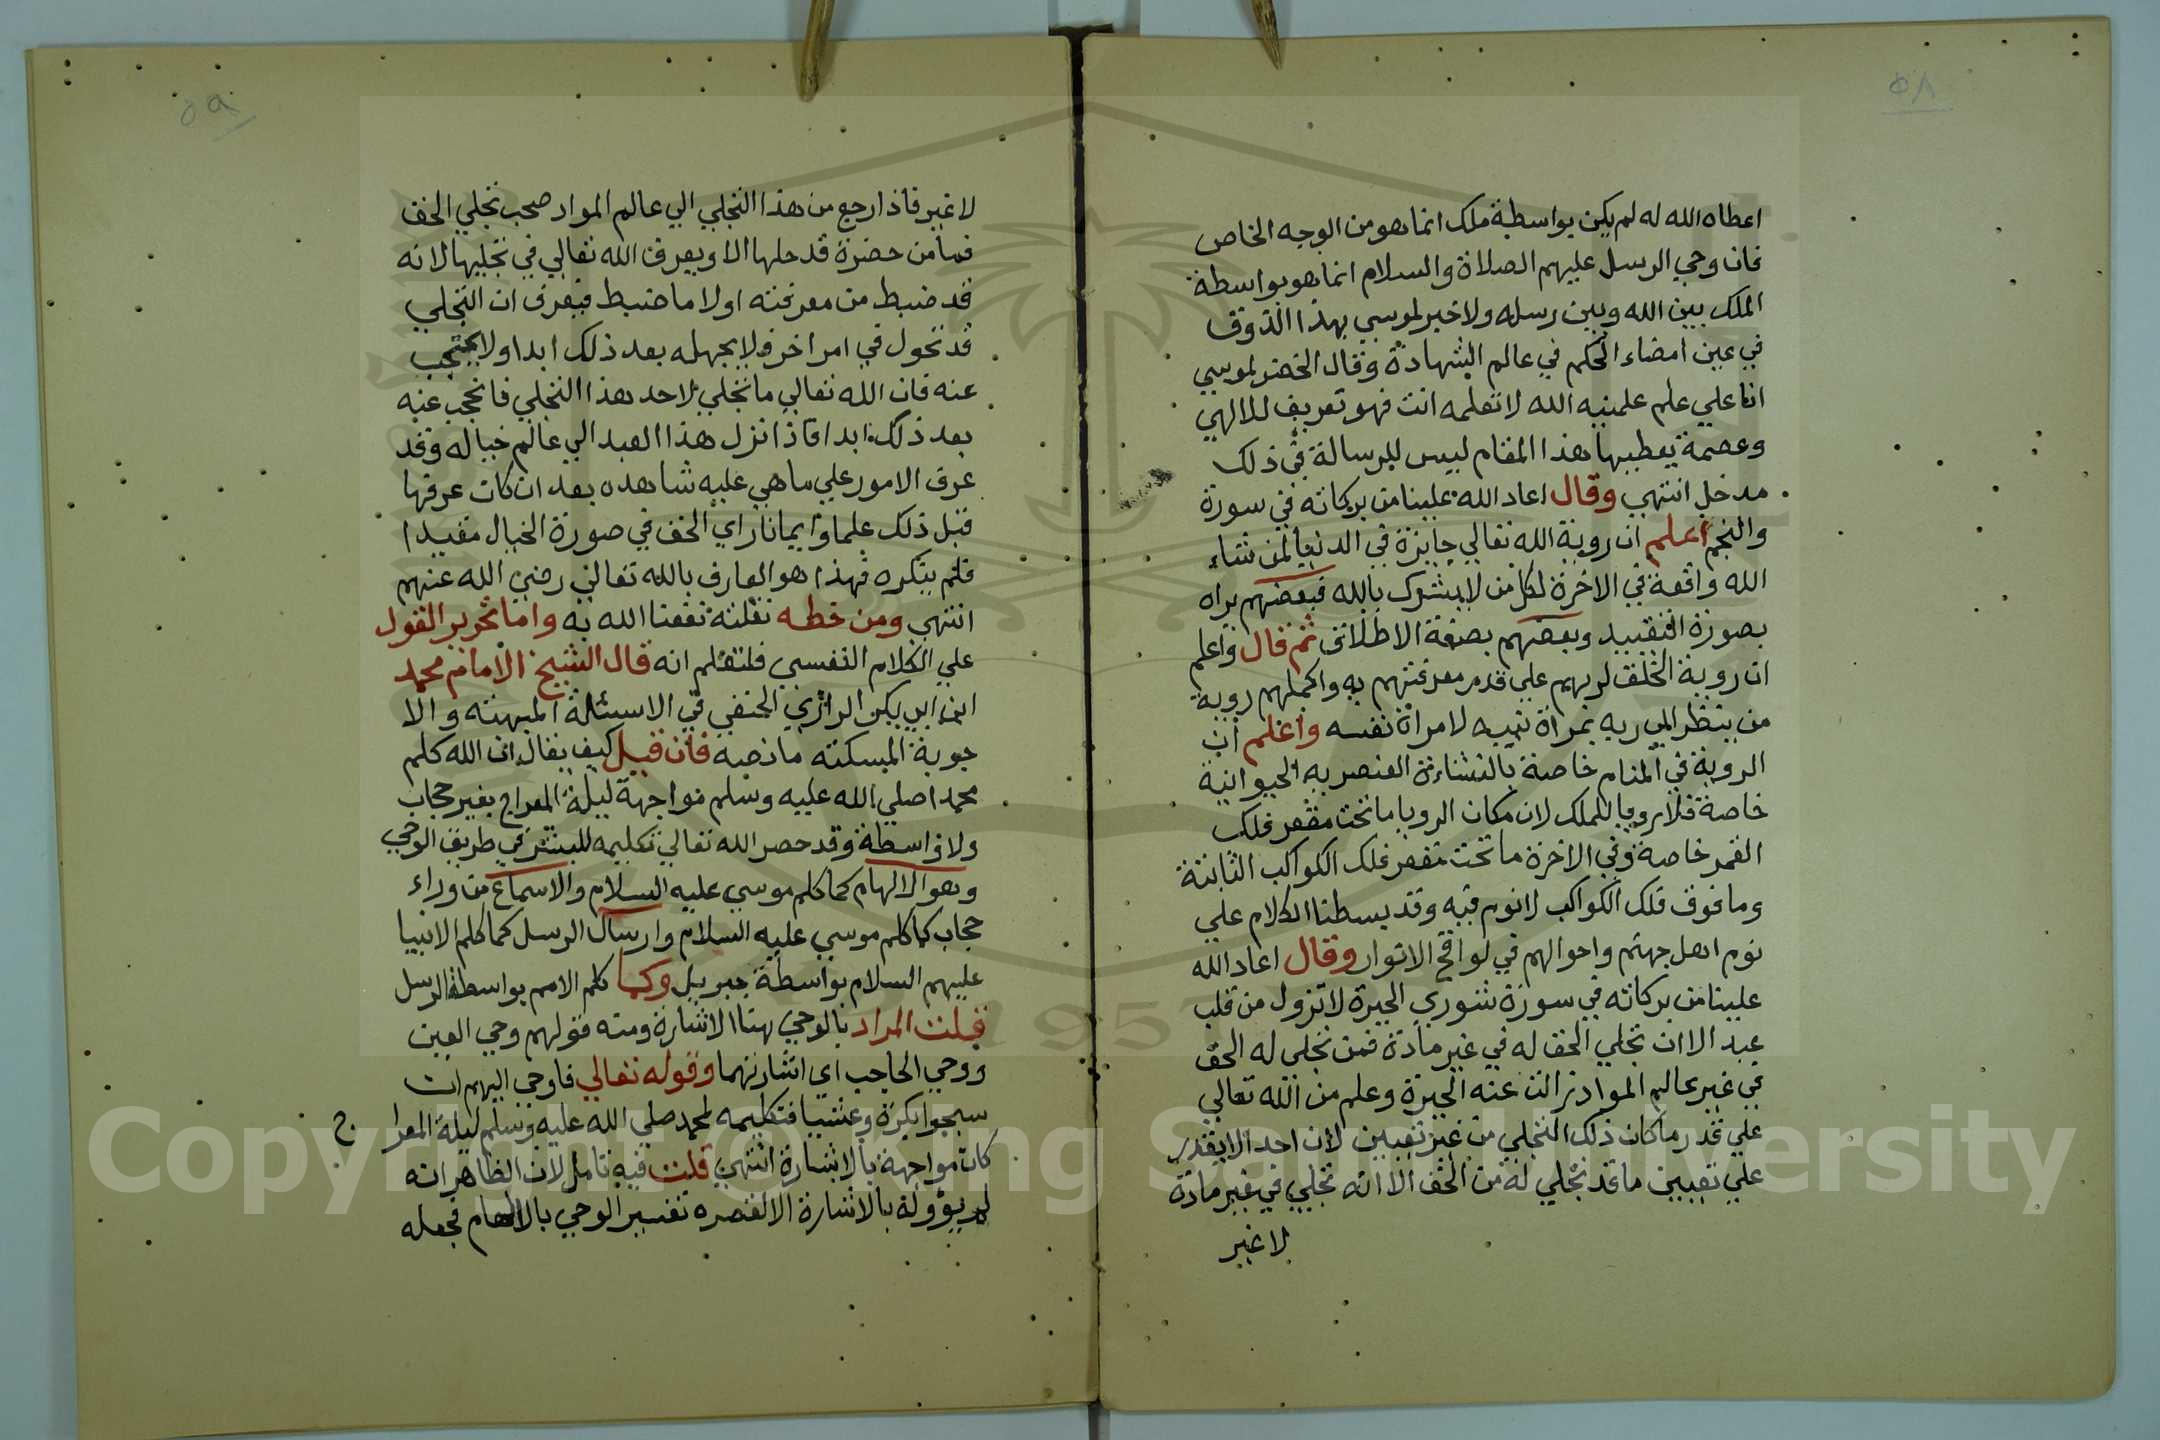 ٥٨
اعطاه الله له لم يكن بواسطة ملك انما هو من الوجه الخاص
فان وحي الرسل عليهم الصلاة والسلام انما هو بواسطة
الملك بين الله وبين رسله ولا خبر لموسي بهذا الذوق
في عين امضاء الحكم في عالم الشهادة وقال الخضر لموسي
انا علي علم علمنيه الله لا تعلمه انت فهو تعريف للالهي
وعصمة يعطيها هذا المقام ليس للرسالة في ذلك
مدخل انتهي وقال اعاد الله علينا من بركاته في سورة
والنجم اعلم ان روية الله تعالي جايزة في الدنيا لمن شاء
الله واقعة في الاخرة لكل من لا يشرك بالله فبعضهم يراه
بصورة التقييد وبعضهم بصفة الاطلاق ثم قال واعلم
ان روية الخلق لربهم علي قدر معرفتهم به واكملهم روية
من ينظر الي ربه بمراة نبيه لا مراة نفسه واعلم ان
الروية في المنام خاصة بالنشاءة العنصرية الحيوانية
خاصة فلا رويا للملك لان مكان الرويا ما تحت مقعر فلك
القمر خاصة وفي الاخرة ما تحت مقعر فلك الكواكب الثابتة
وما فوق فلك الكواكب لا نوم فيه وقد بسطنا الكلام علي
نوم اهل جهنم واحوالهم في لواقح الانوار وقال اعاد الله
علينا من بركاته في سورة شوري الحيرة لا تزول من قلب
عبد الا ان تجلي الحق له في غير مادة فمن تجلي له الحق
في غير عالم المواد زالت عنه الحيرة وعلم من الله تعالي
علي قدر ما كان ذلك التجلي من غير تعيين لان احد الا يقدر
علي تعيين ما قد تجلي له من الحق الا انه تجلي في غير مادة
لا غير
٥٩
لا غير فاذا رجع من هذا التجلي الي عالم المواد صحب تجلي الحق
فما من حضرة قد حلها الا ويعرف الله تعالي في تجليها لانه
قد ضبط من معرفته اولا ما ضبط فيعرف ان التجلي
قد تحول في امر اخر فلا يجهله بعد ذلك ابدا ولا يحتجب
عنه فان الله تعالي ما تجلي لاحد هذا التجلي فانحجب عنه
بعد ذلك ابدا فاذا نزل هذا العبد الي عالم خياله وقد
عرف الامور علي ما هي عليه شاهده بعد ان كان عرفها
قبل ذلك علما وايمانا راي الحق في صورة الخيال مقيدا
فلم ينكره فهذا هو العارف بالله تعالي رضي الله عنهم
انتهي ومن خطه نقلته نفعنا الله به واما تحرير القول
علي الكلام النفسي فلتعلم انه قال الشيخ الامام محمد
ابن ابي بكر الرازي الحنفي في الاسئلة المبهتة والا
جوبة المسكتة ما نصه فان قيل كيف يقال ان الله كلم
محمدا صلي الله عليه وسلم مواجهة ليلة المعراج بغير حجاب
ولا واسطة وقد حصر الله تعالي تكليمه للبشر في طريق الوحي
وهو الالهام كما كلم موسي عليه السلام والاسماع من وراء
حجاب كما كلم موسي عليه السلام وارسال الرسل كما كلم الانبيا
عليهم السلام بواسطة جبريل وكما كلم الامم بواسطة الرسل
قلت المراد بالوحي هنا الاشارة ومنه قولهم وحي العين
ووحي الحاجب اي اشارتهما وقوله تعالي فاوحي اليهم ان
سبحوا بكرة وعشيا فتكليمه لمحمد صلي الله عليه وسلم ليلة المعرا ج
كان مواجهة بالاشارة انتهي قلت فيه تامل لان الظاهر انه
لم يؤوله بالاشارة الا لقصره تفسير الوحي بالالهام فجعله
Copyright © King Saud University
1957